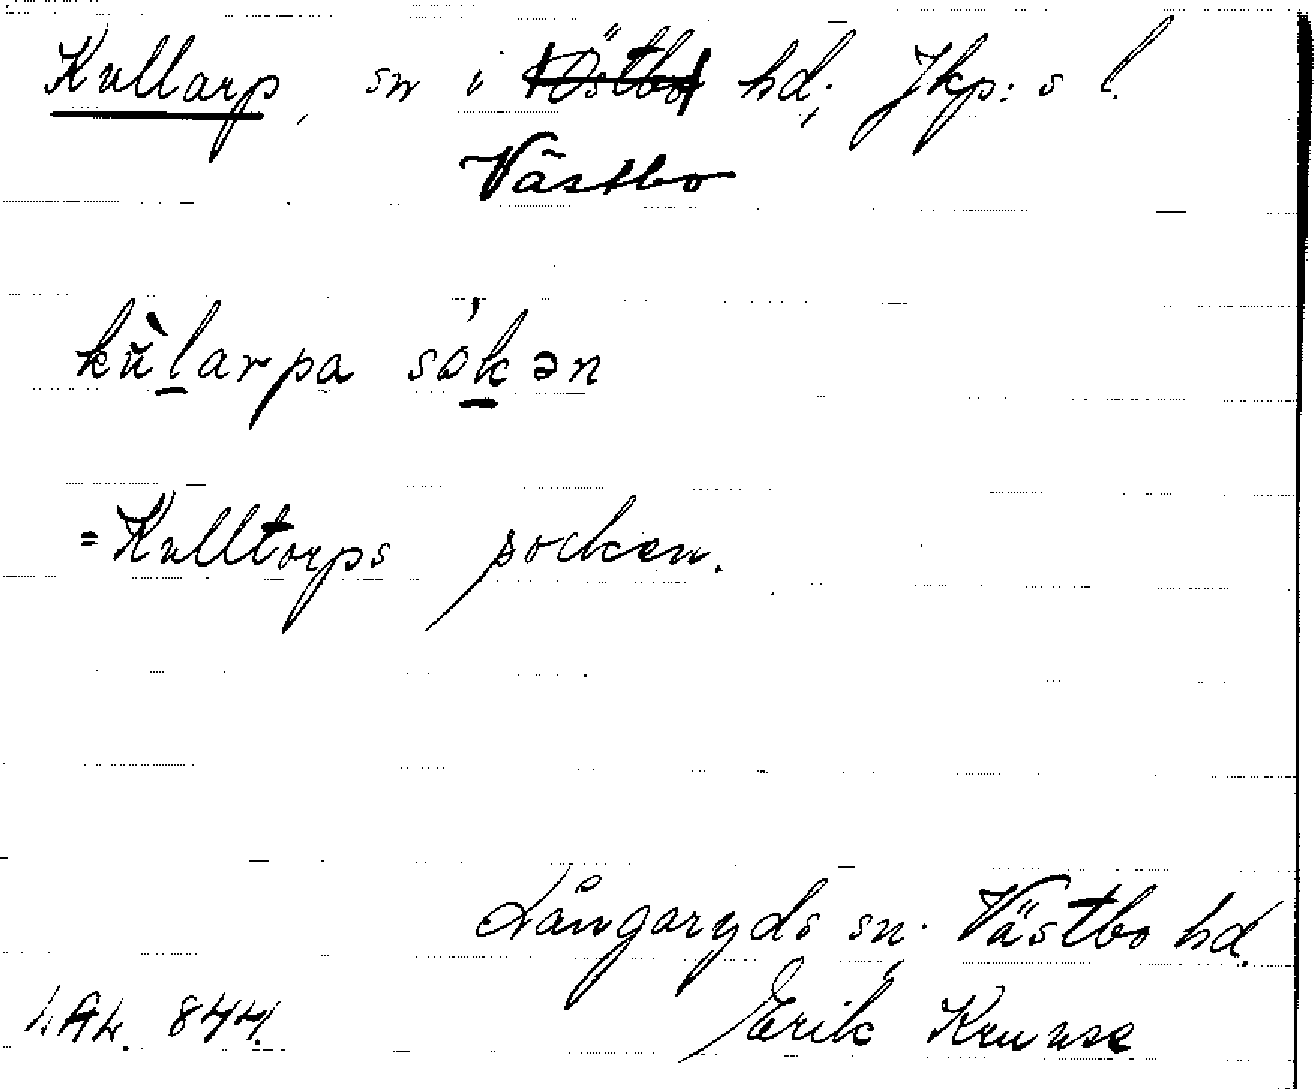 Kullarp, sn i Östbo hd; Jkp: s l.
Västbo
kùlarpa sókən
= Kulltorps socken.
Långaryds sn. Västbo hd.
LAL. 844. Erik Kruuse